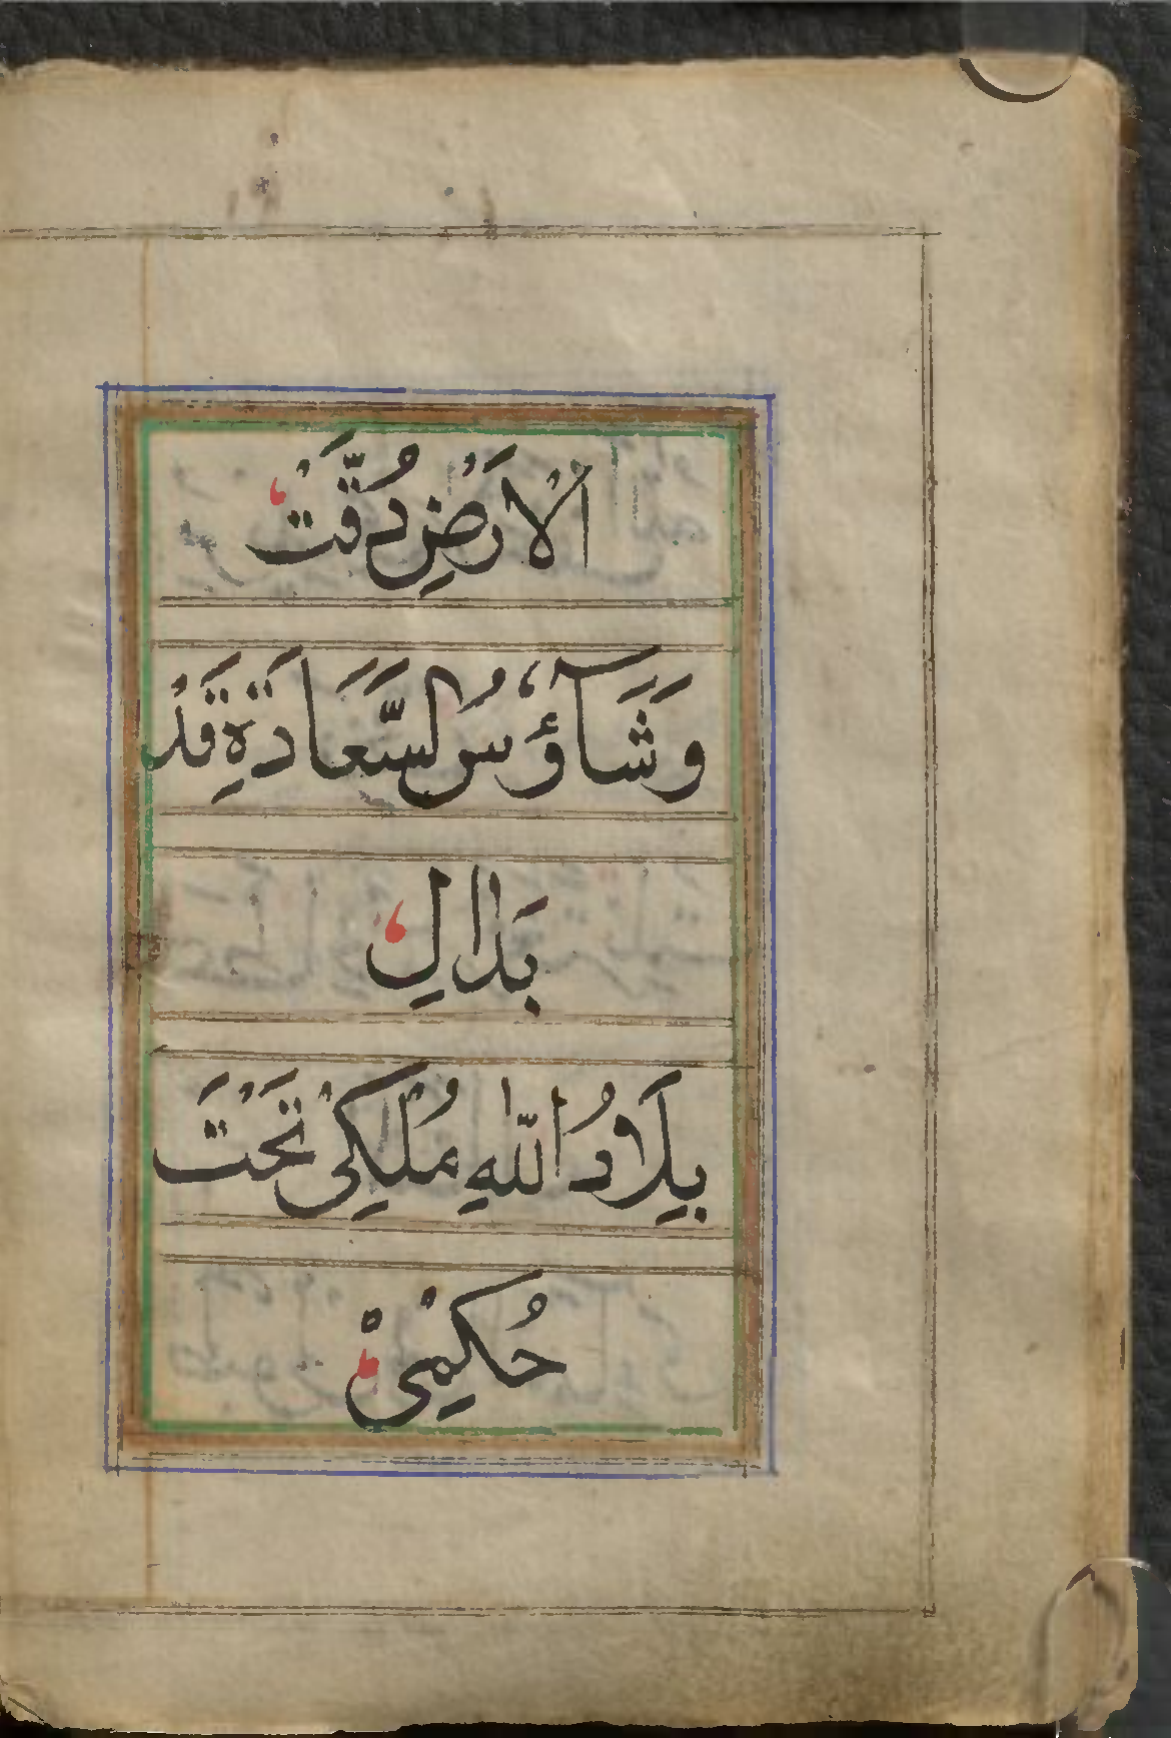 الْاَرْضِ دُقَّتْ
وَشَآؤُسُ السَّعَادَةِ قَدْ
بَدَالِ
بِلَادُ اللّٰهِ مُلْكِىْ تَحْتَ
حُكْمِىْ